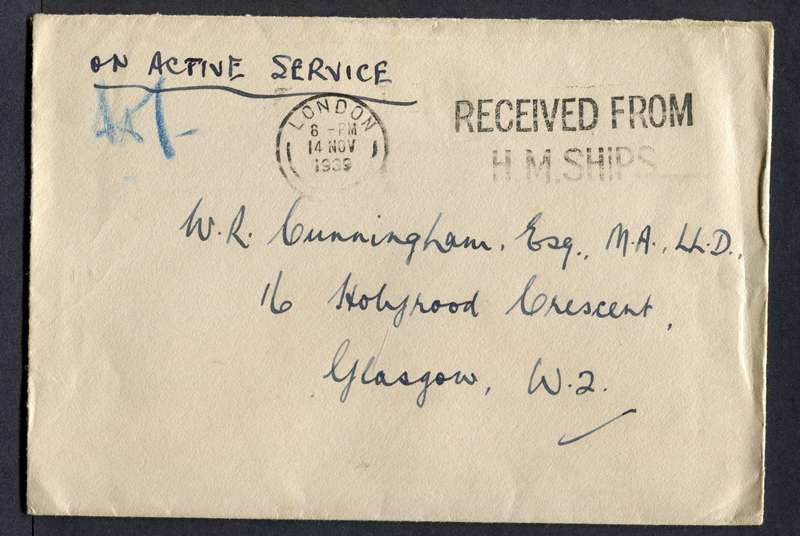 ON ACTIVE SERVICE
LONDON
8 - PM
14 NOV
1939
RECEIVED FROM
H.M.SHIPS
W. R. Cunningham, Esq., M.A., LL.D.,
16 Holyrood Crescent,
Glasgow, W.2.